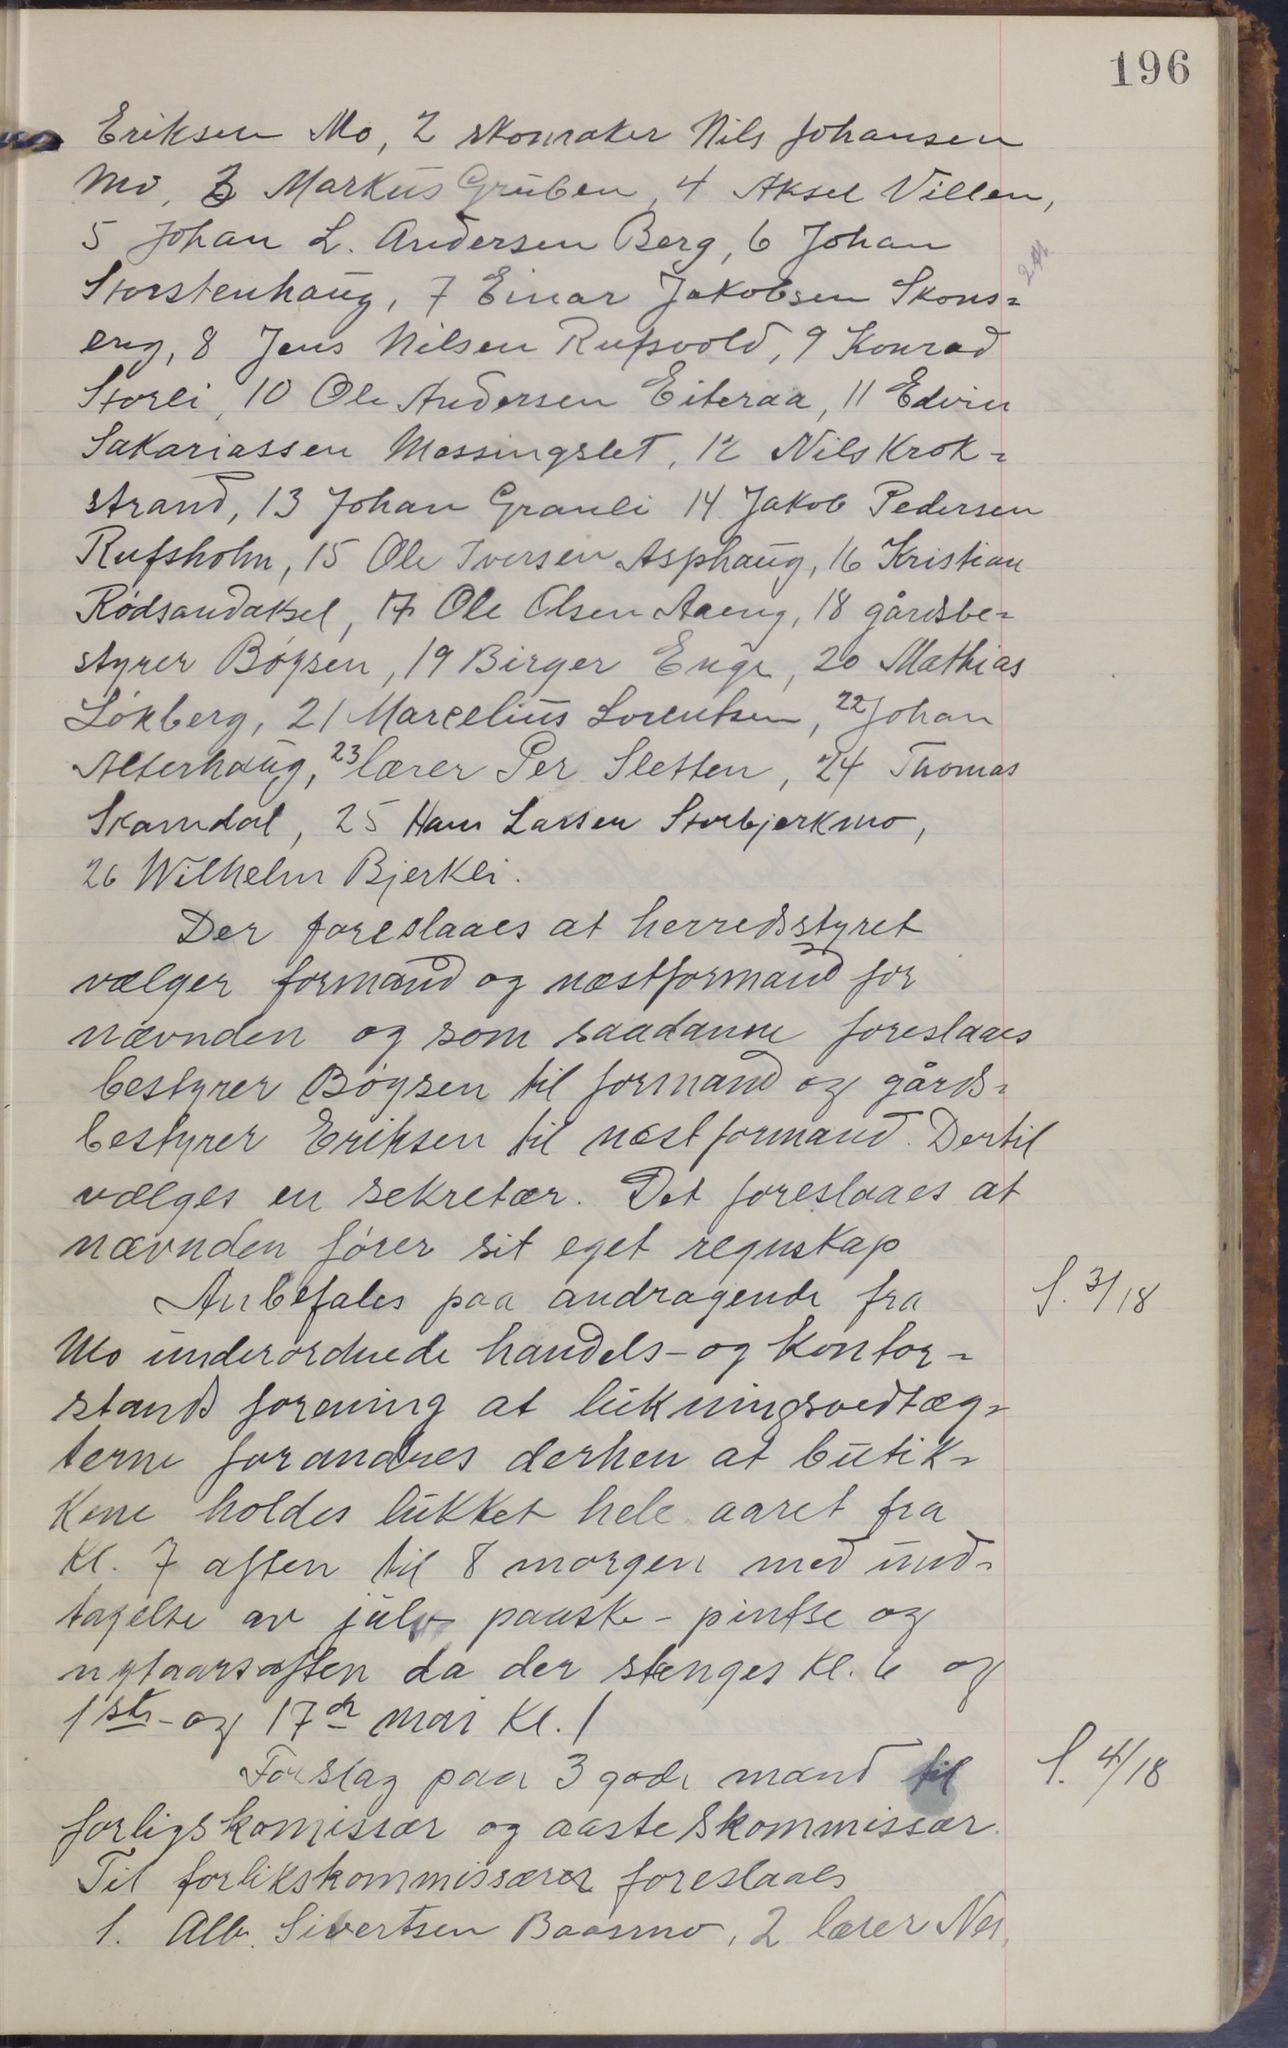 196
Eriksen Mo, 2 skomaker Nils Johansen
Mo, 3 Markus Gruben, 4 Aksel Villen,
5 Johan L. Andersen Berg, 6 Johan
Storstenhaug, 7 Einar Jakobsen Skons=
eng, 8 Jens Nilsen Rufsvold, 9 Konrad
Storli, 10 Ole Andersen Eiteraa, 11 Edvin
Sakariassen Messingslet, 12 Nils Krok=
strand, 13 Johan Granli 14 Jakob Pedersen
Rufsholm, 15 Ole Iversen Asphaug, 16 Kristian
Rødsandaksel, 17 Ole Olsen Aaeng, 18 gårdsbe=
styrer Bøysen, 19 Birger Enge, 20 Mathias
Løkberg, 21 Marcelius Lorentsen, 22 Johan
Alterhaug, 23 lærer Per Sletten, 24 Thomas
Skamdal, 25 Hans Larsen Storbjerkmo,
26 Wilhelm Bjerkli.
Der foreslaaes at herredsstyret
vælger formand og næstformand for
nævnden og som saadanne foreslaaes
bestyrer Bøysen til formand og gårds=
bestyrer Eriksen til næstformand. Dertil
vælges en sekretær. Det foreslaaes at
nævnden fører sit eget regnskap
Anbefales paa andragende fra
S. 3/18
Mo underordnede handels- og kontor=
stands forening at lukningsvedtæg=
terne forandres derhen at butik=
kene holdes lukket hele aaret fra
Kl. 7 aften til 8 morgen med und=
tagelse av jul- paaske- pintse og
nytaarsaften da der stenges kl. 6 og
1ste- og 17de mai Kl. 1
Forslag paa 3 gode mænd til
S. 4/18
forligskomissær og aasteskommissær.
Til forlikskommissærer foreslaaes
1. Alb. Sivertsen Baasmo, 2 lærer Nes,